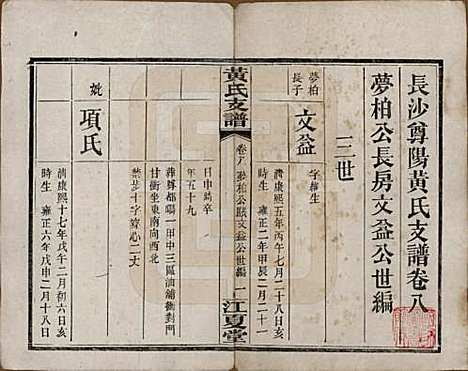 長沙尊陽黃氏支譜卷八
夢柏公長房文益公世編
三世
夢柏長子
文益
字
清康熙五年丙午七月二十八日亥
時生 雍正二年甲辰二月二十一
日申時卒
年五十九
葬尊都
一甲中三區油舖
對門
甘衝坐東南向西北
禁步十字穿心二丈
妣
項氏
清康熙十七年戊午二月初六日亥
時生 雍正六年戊申二月十八日
黃氏支譜
卷八 夢柏公長房文益公世編
一
江夏堂